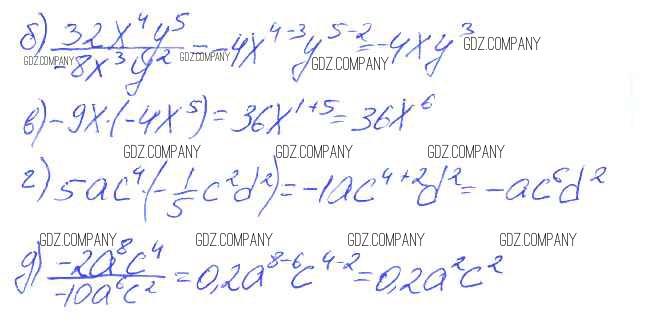 б) 32x⁴y⁵ / -8x³y² = -4x⁴⁻³y⁵⁻² = -4xy³
GDZ.COMPANY GDZ.COMPANY GDZ.COMPANY GDZ.COMPANY
в) -9x·(-4x⁵) = 36x¹⁺⁵ = 36x⁶
GDZ.COMPANY GDZ.COMPANY GDZ.COMPANY
г) 5ac⁴·(-1/5c²d²) = -1ac⁴⁺²d² = -ac⁶d²
GDZ.COMPANY GDZ.COMPANY GDZ.COMPANY GDZ.COMPANY
д) -2a⁸c⁴ / -10a⁶c² = 0,2a⁸⁻⁶c⁴⁻² = 0,2a²c²